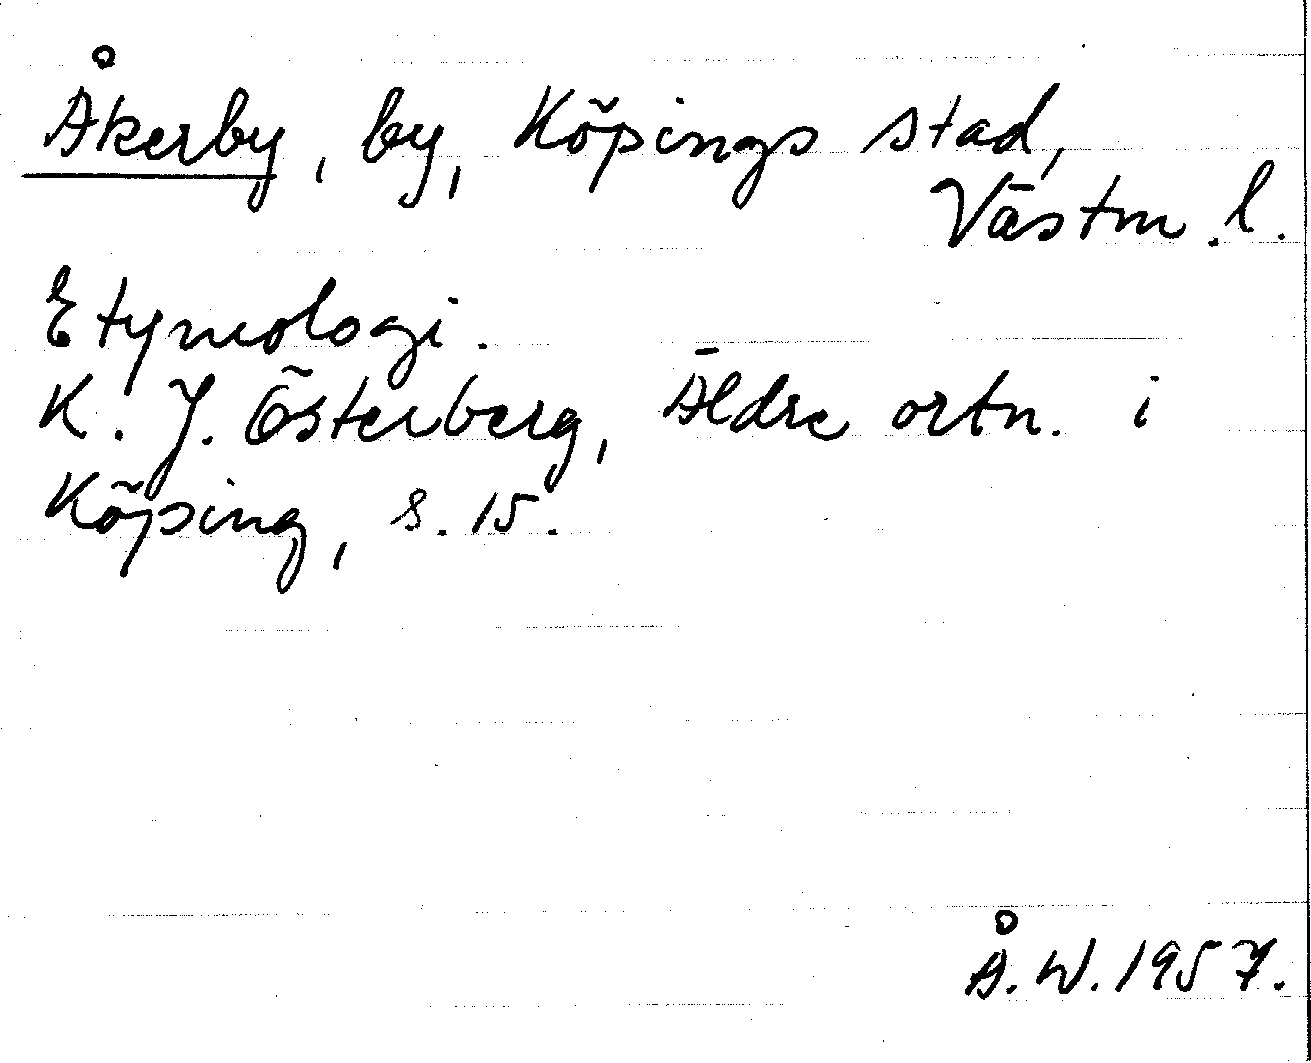 Åkerby, by, Köpings stad,
Västm. l.
Etymologi.
K. J. Österberg, Äldre ortn. i
Köping, s. 15.
Å. W. 1957.